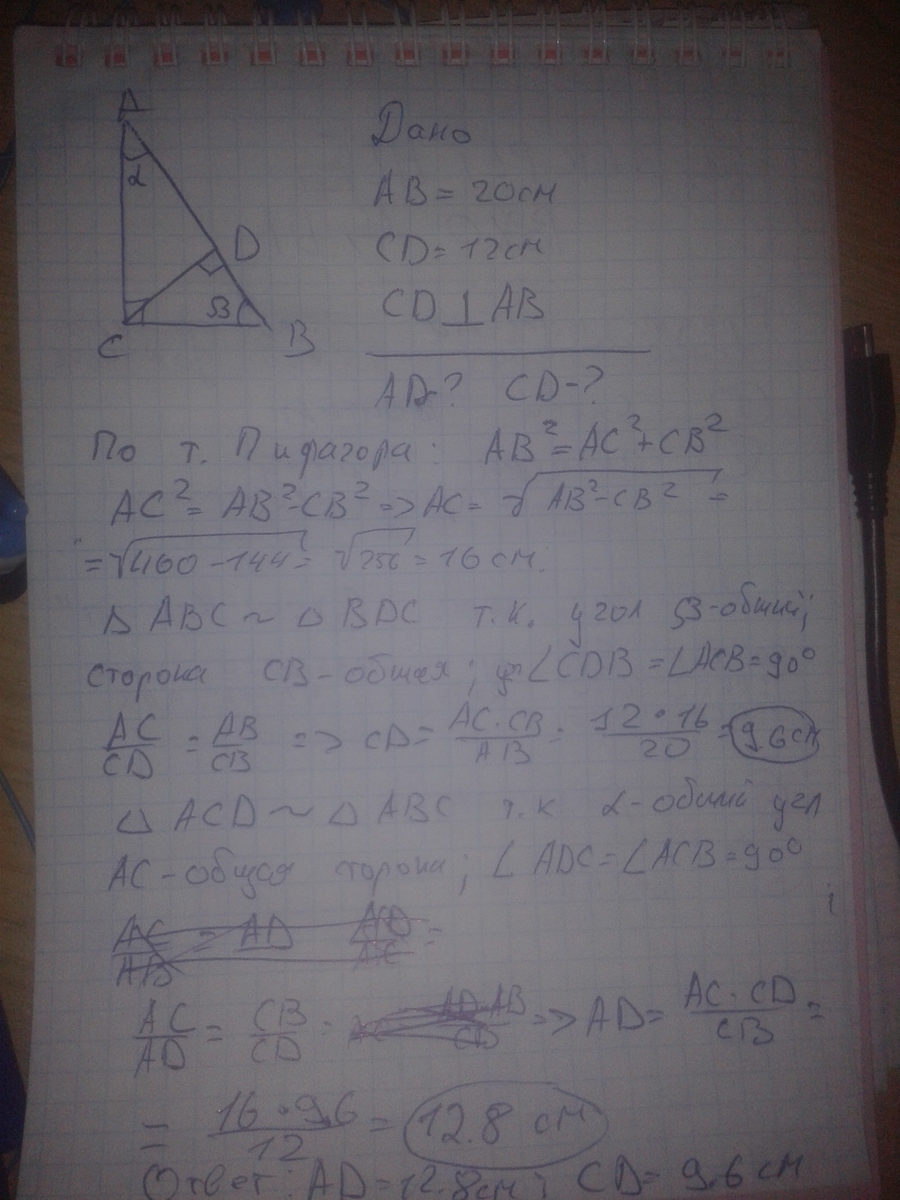 A
α
D
β
C
B
Дано
AB = 20см
CD = 12см
CD ⊥ AB
AD-? CD-?
По т. Пифагора: AB² = AC² + CB²
AC² = AB² - CB² => AC = √AB² - CB² =
= √460 - 144 = √256 = 16 см.
△ ABC ~ △ BDC т.к. угол β-общий;
сторона CB - общая; ∠CDB = ∠ACB = 90°
AC/CD = AB/CB => CD = AC · CB/AB = 12 · 16/20 = 9.6см
△ ACD ~ △ ABC т.к α - общий угл
AC - общая сторона; ∠ ADC = ∠ACB = 90°
AC/AD = CB/CD => AD = AC · CD/CB =
= 16 · 9.6/12 = 12.8 см
Ответ: AD = 12.8см; CD = 9.6 см